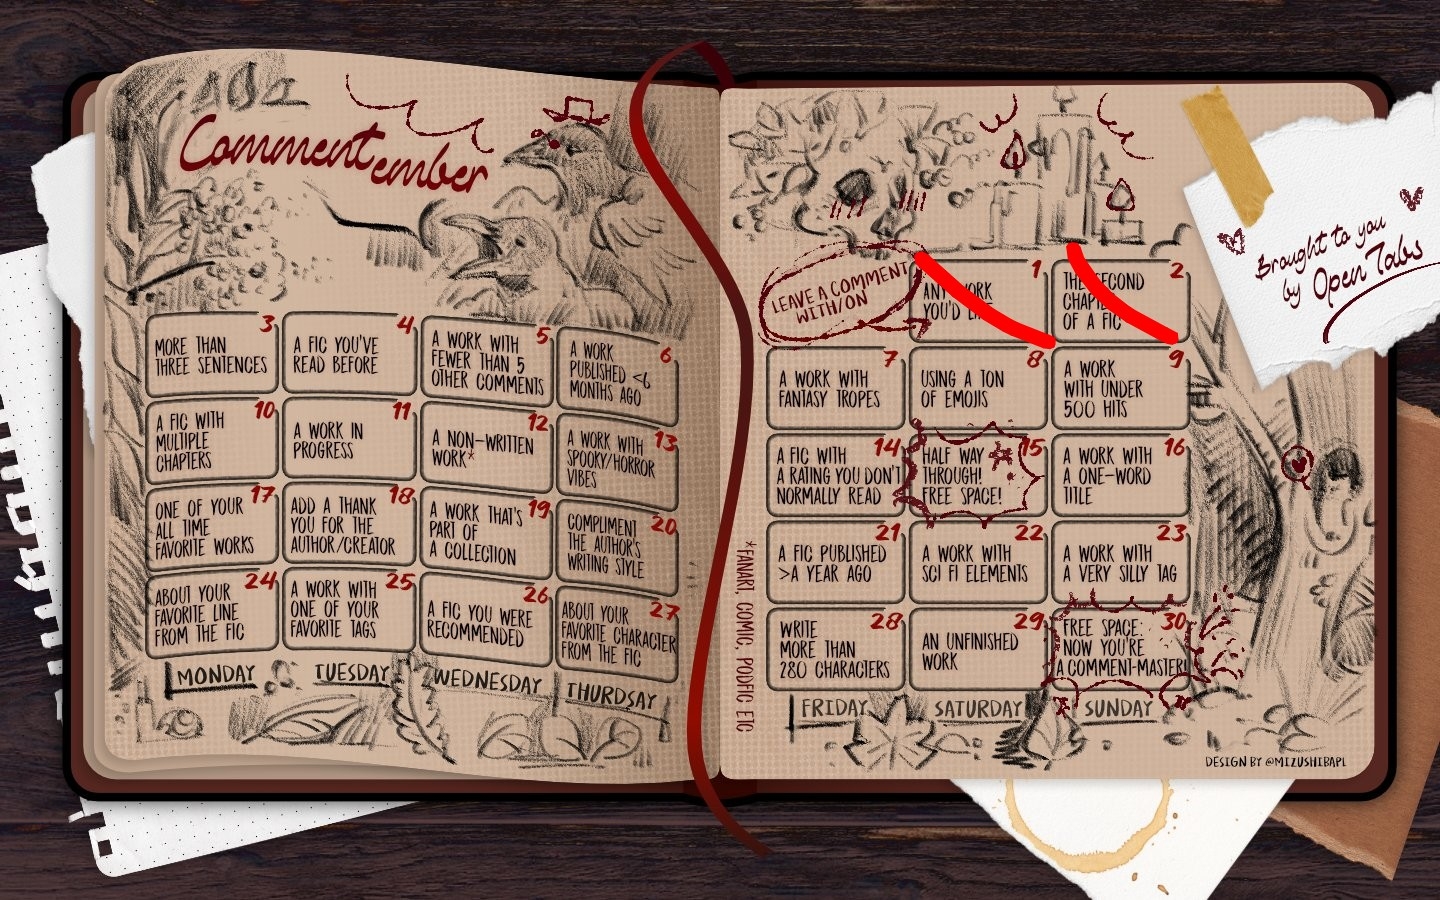 Commentember
LEAVE A COMMENT
WITH/ON
1
ANY WORK
YOU'D
2
THE SECOND
CHAPTER
OF A FIC
Brought to you
by Open Tabs
3
MORE THAN
THREE SENTENCES
4
A FIC YOU'VE
READ BEFORE
5
A WORK WITH
FEWER THAN 5
OTHER COMMENTS
6
A WORK
PUBLISHED <6
MONTHS AGO
7
A WORK WITH
FANTASY TROPES
8
USING A TON
OF EMOJIS
9
A WORK
WITH UNDER
500 HITS
10
A FIC WITH
MULTIPLE
CHAPTERS
11
A WORK IN
PROGRESS
12
A NON-WRITTEN
WORK*
13
A WORK WITH
SPOOKY/HORROR
VIBES
14
A FIC WITH
A RATING YOU DON'T
NORMALLY READ
15
HALF WAY
THROUGH!
FREE SPACE!
16
A WORK WITH
A ONE-WORD
TITLE
17
ONE OF YOUR
ALL TIME
FAVORITE WORKS
18
ADD A THANK
YOU FOR THE
AUTHOR/CREATOR
19
A WORK THAT'S
PART OF
A COLLECTION
20
COMPLIMENT
THE AUTHOR'S
WRITING STYLE
21
A FIC PUBLISHED
>A YEAR AGO
22
A WORK WITH
SCI FI ELEMENTS
23
A WORK WITH
A VERY SILLY TAG
24
ABOUT YOUR
FAVORITE LINE
FROM THE FIC
25
A WORK WITH
ONE OF YOUR
FAVORITE TAGS
26
A FIC YOU WERE
RECOMMENDED
27
ABOUT YOUR
FAVORITE CHARACTER
FROM THE FIC
28
WRITE
MORE THAN
280 CHARACTERS
29
AN UNFINISHED
WORK
30
FREE SPACE:
NOW YOU'RE
A COMMENT-MASTER!
MONDAY
TUESDAY
WEDNESDAY
THURDSAY
FRIDAY
SATURDAY
SUNDAY
*FANART, COMIC, PODFIC ETC
DESIGN BY @MIZUSHIBAPL